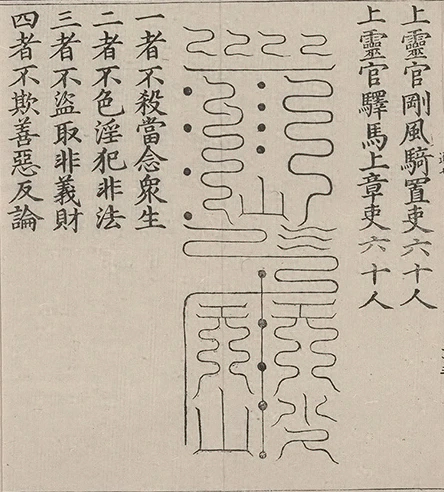 上靈官剛風騎置吏六十人
上靈官驛馬上章吏六十人
一者不殺當念衆生
二者不色淫犯非法
三者不盜取非義財
四者不欺善惡反論